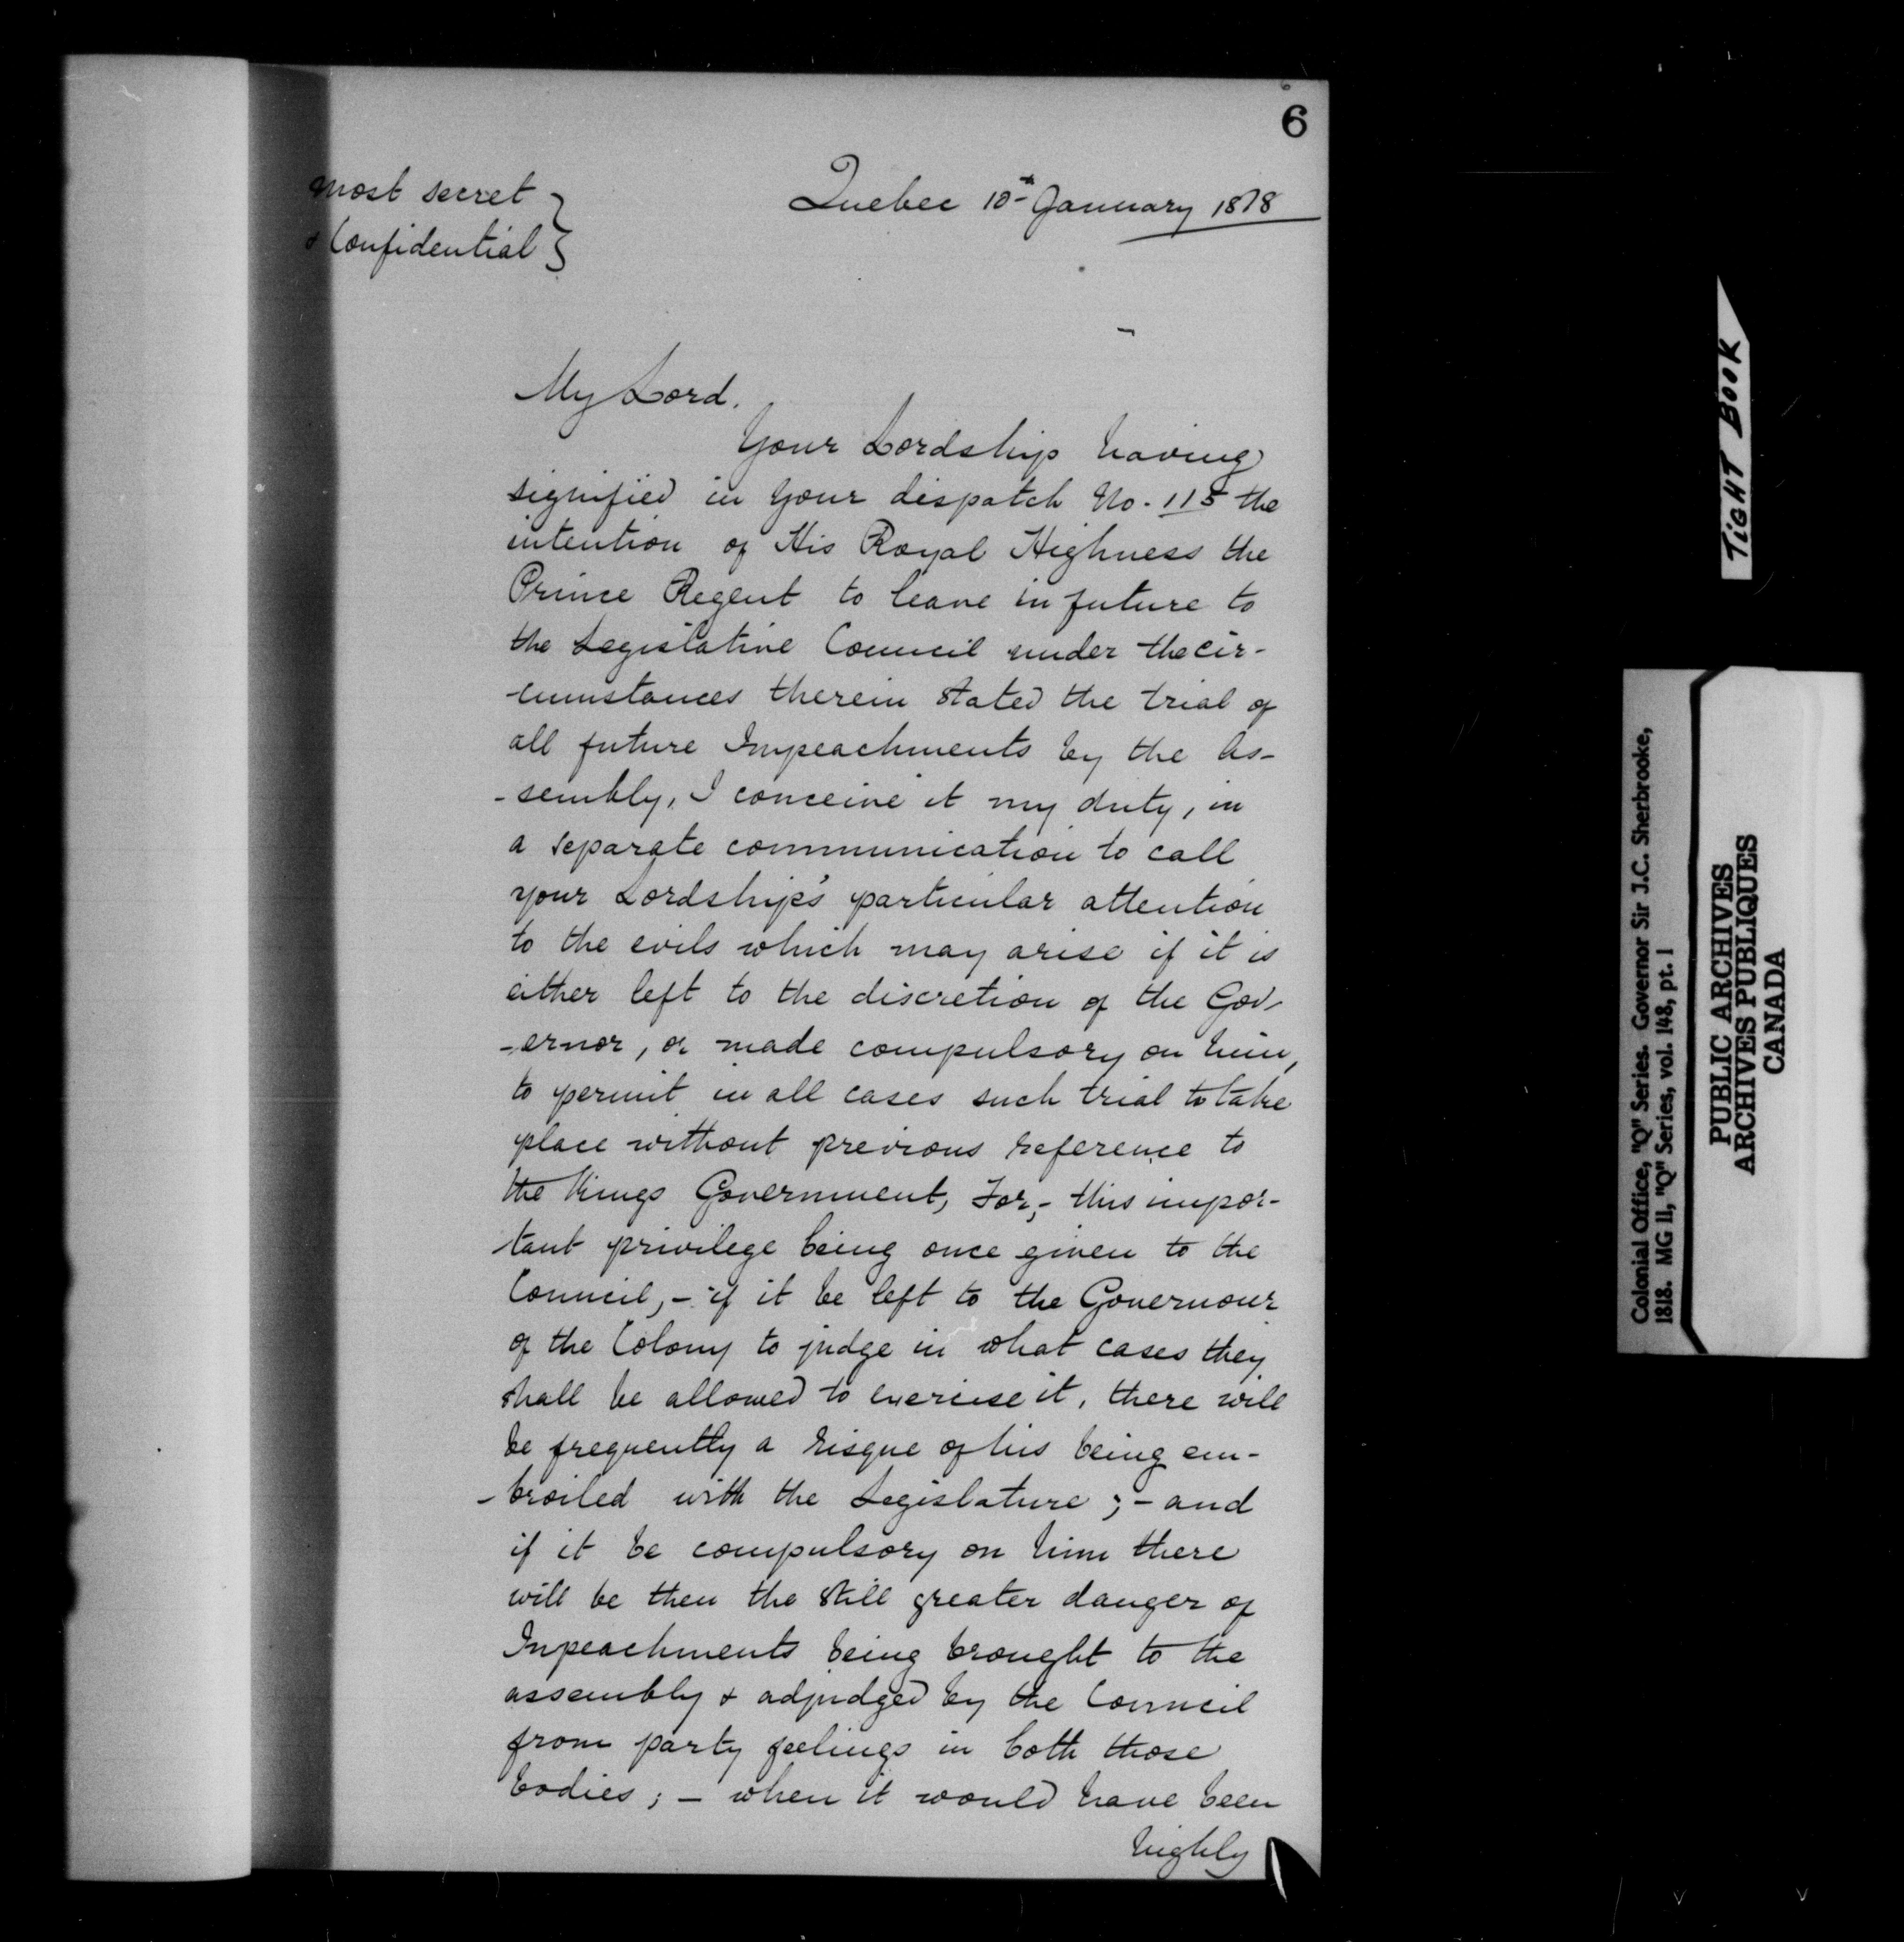 6
Most secret
& Confidential }
Quebec 10th January 1818
My Lord.
Your Lordship having
signified in your dispatch No. 115 the
intention of His Royal Highness the
Prince Regent to leave in future to
the Legislative Council under the cir-
-cumstances therein stated the trial of
all future Impeachments by the As-
-sembly, I conceive it my duty, in
a separate communication to call
your Lordship's particular attention
to the evils which may arise if it is
either left to the discretion of the Gov-
-ernor, or made compulsory on him,
to permit in all cases such trial to take
place without previous reference to
the Kings Government, For,- this impor-
-tant privilege being once given to the
Council,- if it be left to the Governour
of the Colony to judge in what cases they
shall be allowed to exercise it, there will
be frequently a risque of his being em-
-broiled with the Legislature ;- and
if it be compulsory on him there
will be then the still greater danger of
Inpeachments being brought to the
assembly & adjudged by the Council
from party feelings in both those
bodies ; - when it would have been
highly
TIGHT BOOK
Colonial Office, "Q" Series. Governor Sir J.C. Sherbrooke,
1818. MG 11, "Q" Series, vol. 148, pt. 1
PUBLIC ARCHIVES
ARCHIVES PUBLIQUES
CANADA